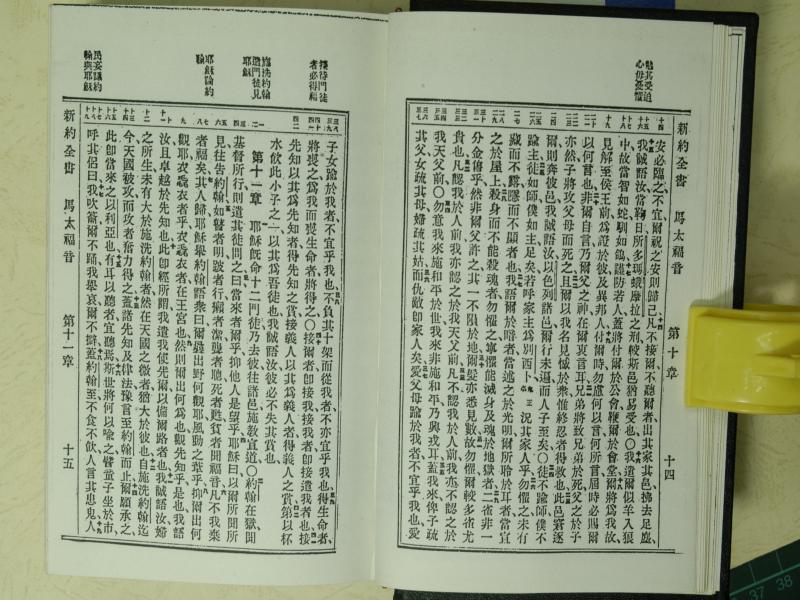 新約全書　馬太福音　第十章　十四
勉其受迫心毋葸懼
安必臨之不宜爾祝之安則歸己凡不接爾不聽爾者出其家其邑拂去足塵
我誠語汝當鞫日所多瑪蛾摩拉之刑較斯邑猶易受也〇我遣爾似羊入狼
中故當智如蛇馴如鴿謹防若人蓋將付爾於公會鞭爾於會堂爾將爲我故
見解至侯王前爲證於彼及異邦人付爾時勿慮何以言何所言屆時必賜爾
以何言也非爾自言乃爾父之神在爾衷言耳兄弟將致兄弟於死父之於子
亦然子將攻父母而死之且爾以我名見憾於衆惟終忍者得救也此邑窘逐
爾則奔彼邑我誠語汝以色列諸邑爾行未遍而人子至矣〇徒不踰師僕不
踰主徒如師僕如主足矣若呼家主爲別西卜況其家人乎勿懼之未有
藏而不露隱而不顯者也我語爾於暗者當述之於光明爾所聆於耳者當宣
之於屋上殺身而不能殺魂者勿懼之寧懼能滅身及魂於地獄者二雀非一
分金售乎然非爾父許之其一不隕於地爾髮亦悉見數故勿懼爾較多雀尤
貴也凡認我於人前我亦認之於我天父前凡不認我於人前我亦不認之於
我天父前〇勿意我來施和平於世我來非施和平乃興戎耳蓋我來俾子疏
其父女疏其母婦疏其姑而仇敵卽家人矣愛父母踰於我者不宜乎我也愛
接待門徒者必得福
施洗約翰遣門徒見耶穌
耶穌論約翰
民妄議約翰與耶穌
子女踰於我者不宜乎我也不負其十架而從我者不亦宜乎我也得生命者
將喪之爲我而喪生命者將得之〇接爾者卽接我接我者卽接遣我者也接
先知以其爲先知者得先知之賞接義人以其爲義人者得義人之賞第以杯
水飲此小子之一以其爲吾徒也我誠語汝彼必不失其賞也
第十一章　耶穌旣命十二門徒乃去彼往諸邑施教宣道〇約翰在獄聞
基督所行則遣其徒問之曰當來者爾乎抑他人是望乎耶穌曰以爾所聞所
見往告約翰如瞽者明跛者行癩者潔聾者聽死者甦貧者聞福音凡不我棄
者福矣其人歸耶穌舉約翰語衆曰爾曩出野何觀耶風動之葦乎抑爾出何
觀耶衣輭衣者乎衣輭衣者在王宮也然則爾出何爲也觀先知乎是也我語
汝且卓越於先知也此卽經所謂我遣我使先爾以備爾路者也我誠語汝婦
之所生未有大於施洗約翰者然在天國之微者猶大於彼也自施洗約翰迄
今天國被攻而攻者奮力得之蓋諸先知及律法豫言至約翰而止爾願承之
此卽當來之以利亞也有耳以聽者宜聽焉斯世將何以喩之譬童子坐於市
呼其侶曰我吹籥爾不踊我舉哀爾不擗蓋約翰至不食不飲人言其患鬼人
新約全書　馬太福音　第十一章　十五
37　38